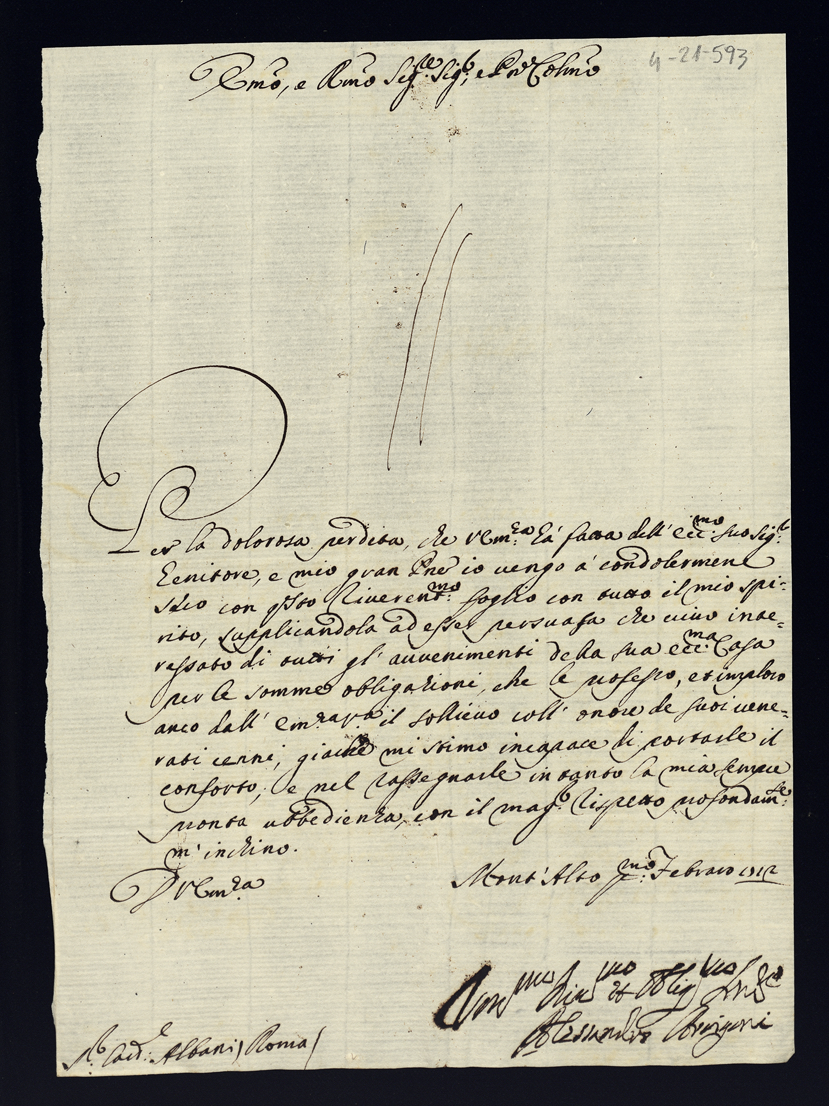 4-21-593
Emo, e Rmo Sig.re Sig.r, e Pne Colmo
Per la dolorosa perdita, che V Em.za hà fatta dell' ecc.mo suo Sig.r
Genitore, e mio gran Pne io vengo à condolermene
seco con q̃sto riverent.mo foglio con tutto il mio spi-
rito, supplicandola ad esser persuasa che vivo inte-
ressato di tutti gl' avvenimenti della sua ecc.ma Casa
per le somme obligazioni, che le professo, et imploro
anco dall' Em.za V.ra il sollievo coll' onore de suoi vene-
rati cenni, giachè mi stimo incapace di portarle il
conforto, e nel rassegnarle intanto la mia sempre
pronta ubbedienza, con il mag.r rispetto profondam.te
m' inchino.
D V Em.za
Mont' Alto p.mo Febraro 1712
Um.mo Dev.mo et Oblig.mo
Alessandro
S.r Card.le Albani / Roma /